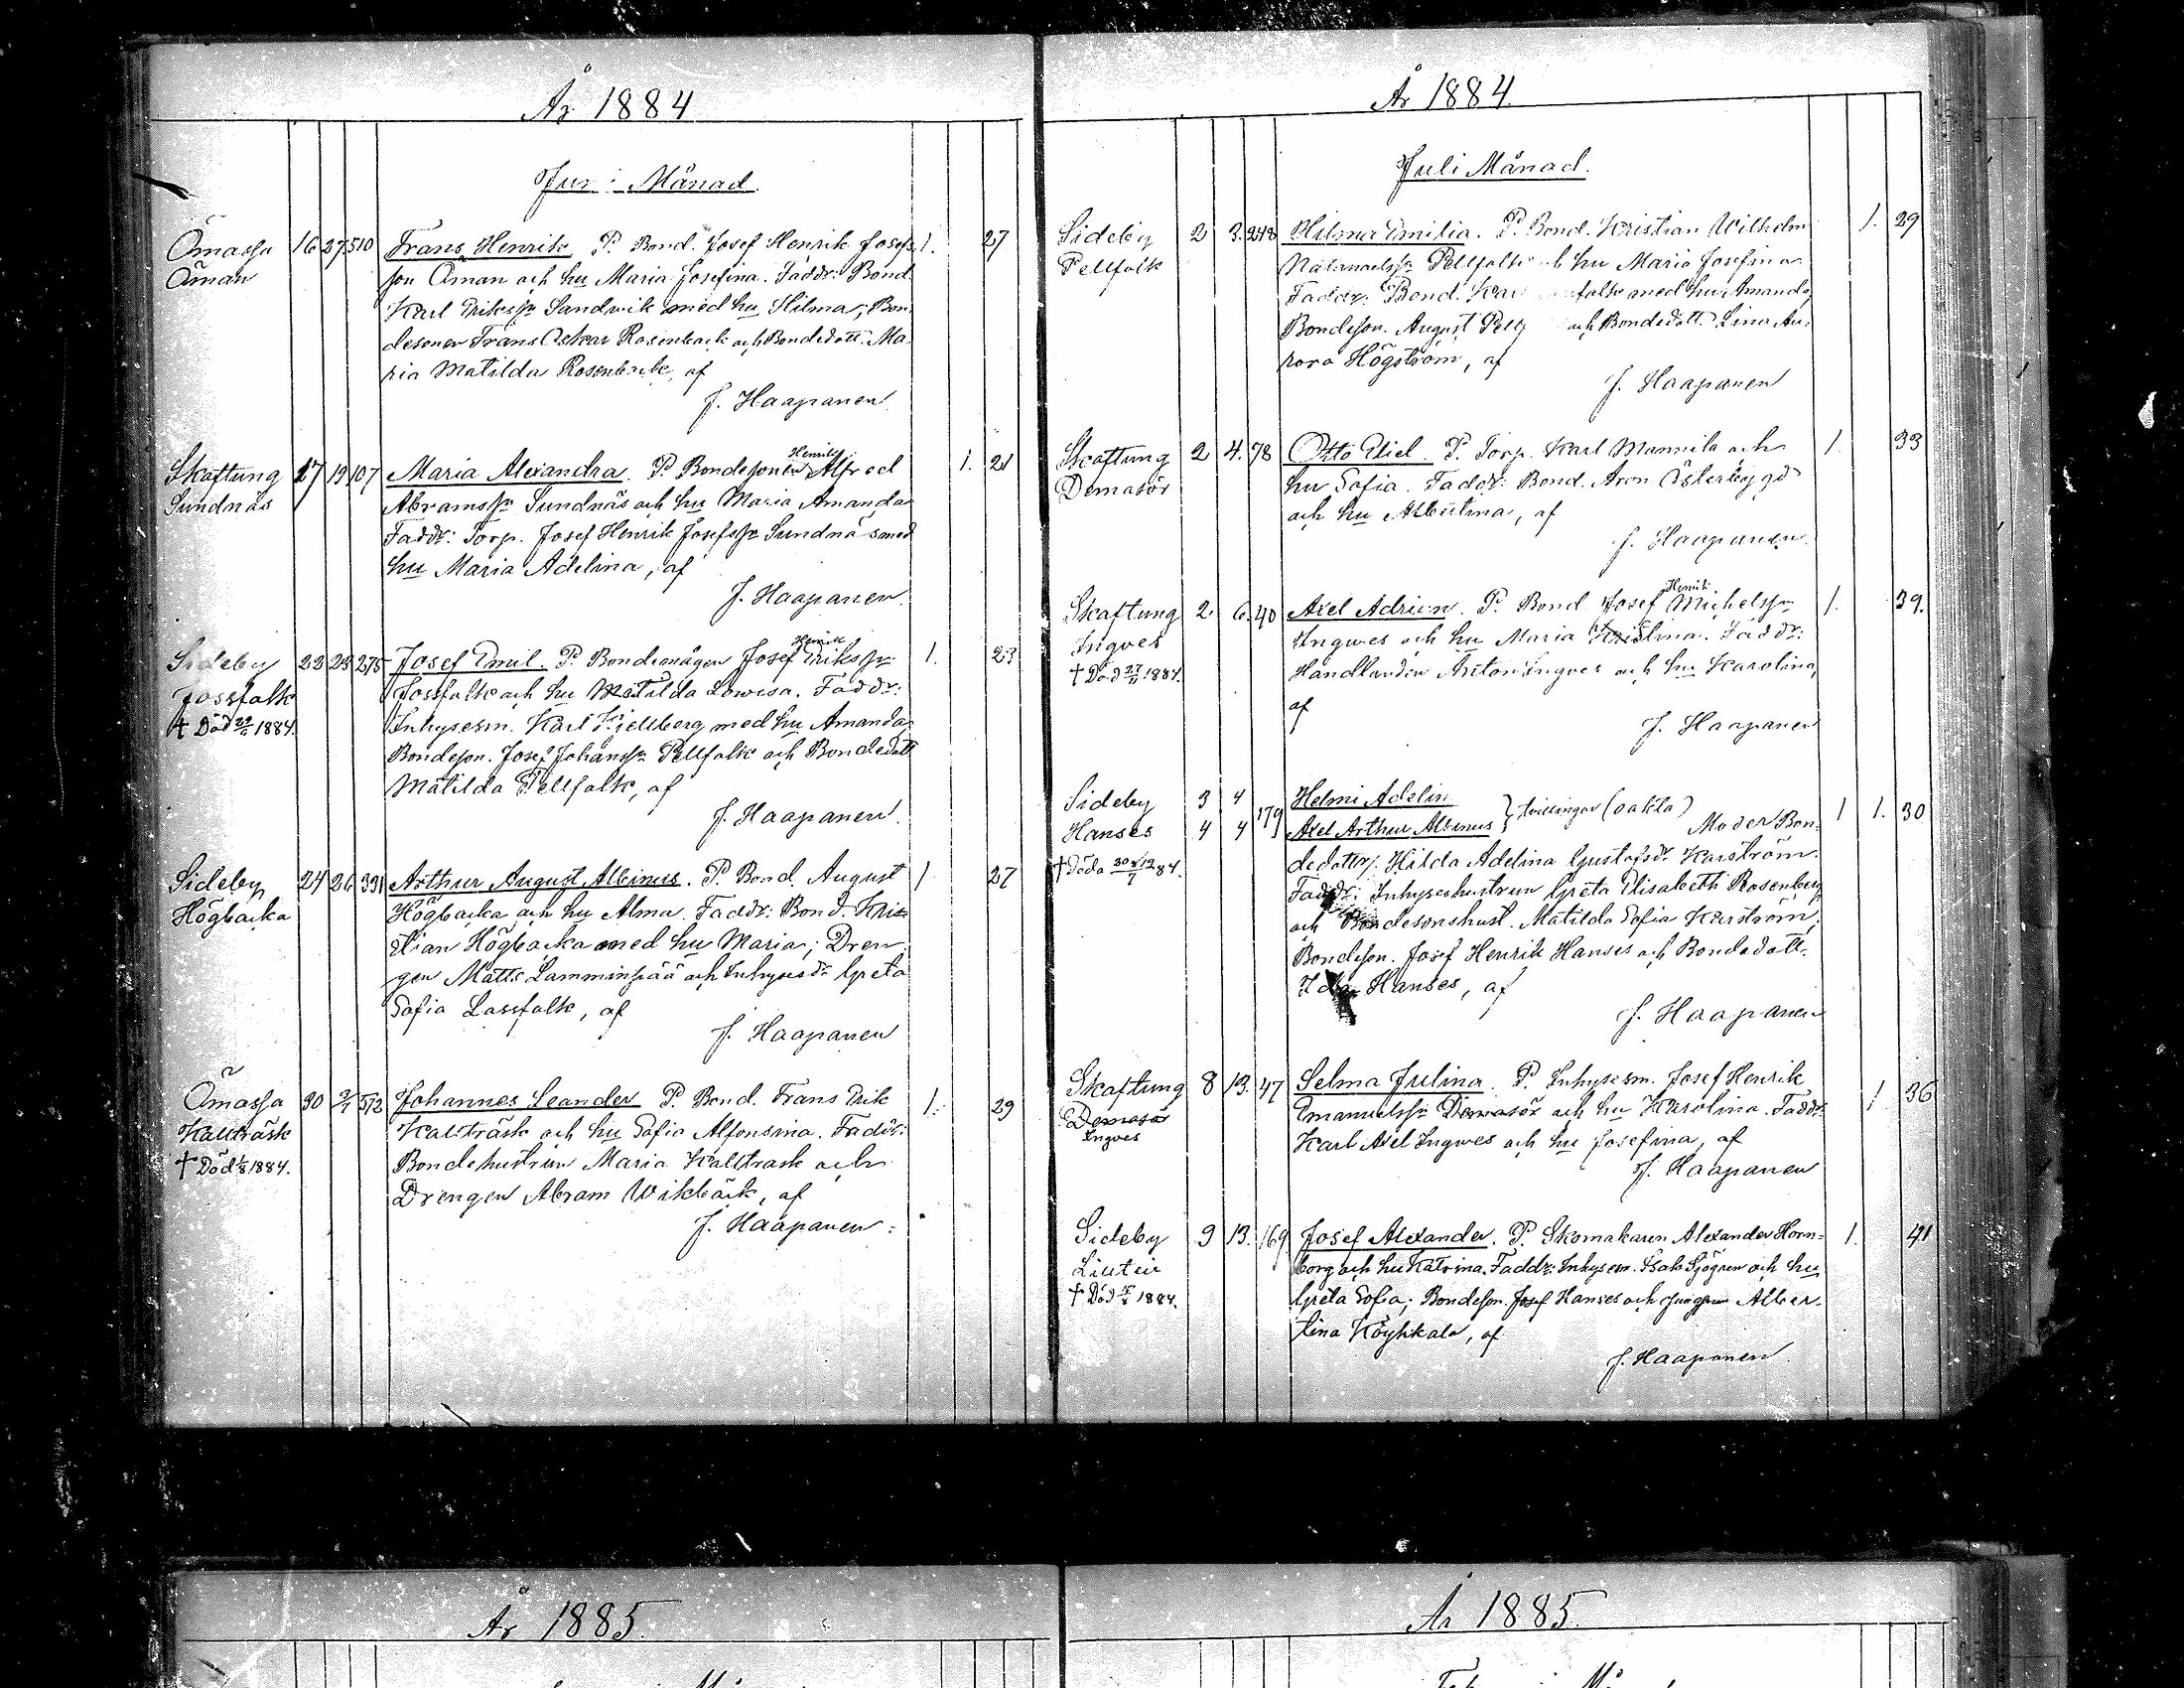 År 1884
Juni Månad.
Ömossa 16 27. 510 Frans Henrik. P. Bond. Josef Henrik Josefs- 1. 27
Öman son Öman och hu Maria Josefina. Faddr: Bond.
Karl Erikssn Sandvik med hu Hilma; Bon-
desonen Frans Oskar Rosenback och Bondedott. Ma-
ria Matilda Rosenback, af
J. Haapanen
Skaftung 17 19 107 Maria Alexandra. P. Bondesonen Henrik Alfred 1. 21
Sundnäs Abramssn Sundnäs och hu Maria Amanda
Faddr: Torp. Josef Henrik Josefssn Sundnäs med
hu Maria Adelina, af
J. Haapanen.
Sideby 22 23 275 Josef Emil. P. Bondemågen Josef Henrik Erikssn 1. 23
Jossfolk Jossfolk och hu Matilda Lowisa. Faddr:
† Död 1884. Inhysesm. Karl Kjellberg med hu Amanda,
Bondeson. Josef Johanssn Pellfolk och Bondedott
Matilda Pellfolk, af
J. Haapanen.
Sideby 24 26 331 Arthur August Albinus. P. Bond. August 1 27
Högbacka Högbacka och hu Alma. Faddr: Bond. Kris-
tian Högbacka med hu Maria; Dren-
gen Matts Lamminpää och Inhysesdr Greta
Sofia Lassfolk, af
J. Haapanen
Ömossa 30 2/7 572 Johannes Leander P. Bond. Frans Erik 1. 29
Kallträsk Kallträsk och hu Sofia Alfonsina. Faddr:
† Död 1/8 1884. Bondehustrun Maria Kallträsk och
Drengen Abram Wikbäck, af
J. Haapanen.
År 1884.
Juli Månad.
Sideby 2 3. 248 Hilma Emilia. P. Bond. Kristian Wilhelm 1. 29
Pellfolk Natanaelssn Pellfolk och hu Maria Josefina
Faddr: Bond. Karl folk med hu Amanda,
Bondeson. August Pell och Bondedott. Lina Au-
rora Högström, af
J. Haapanen
Skaftung 2 4. 78 Otto Eliel. P. Torp. Karl Mannila och 1. 33
Demasör hu Sofia. Faddr: Bond. Aron Österbygd
och hu Albertina, af
J. Haapanen.
Skaftung 2. 6. 40 Axel Adrian. P. Bond. Josef Henrik Michelssn 1. 39.
Ingves Ingwes och hu Maria Kristina. Faddr:
† Död 27/11 1884. Handlanden Anton Ingves och hu Karolina,
af
J. Haapanen
Sideby 3 4 Helmi Adelin
Hanses 4 4 179 Axel Arthur Albinus } tvillingar (oäkta) Moder Bon- 1 1. 30
† Döda 84. dedottr. Hilda Adelina Gustafsdr Karström.
Faddr: Inhyseshustrun Greta Elisabeth Rosenberg
och Bondesonshust. Matilda Sofia Karström;
Bondeson. Josef Henrik Hanses och Bondedott.
Ida Hanses, af
J. Haapanen
Skaftung 8 13. 47 Selma Julina. P. Inhysesm. Josef Henrik 1 36
Demasör Emanuelssn Demasör och hu Karolina. Faddr:
Ingves Karl Axel Ingwes och hu Josefina, af
J. Haapanen
Sideby 9 13. 169 Josef Alexander. P. Skomakaren Alexander Horn- 1. 41
borg och hu Katrina. Faddr: Inhysem. Isak Sjögren och hu
† Död 1884. Greta Sofia; Bondeson. Josef Hanses och Jungfrun Alber-
tina Köykkälä, af
J. Haapanen.
År 1885.
År 1885.